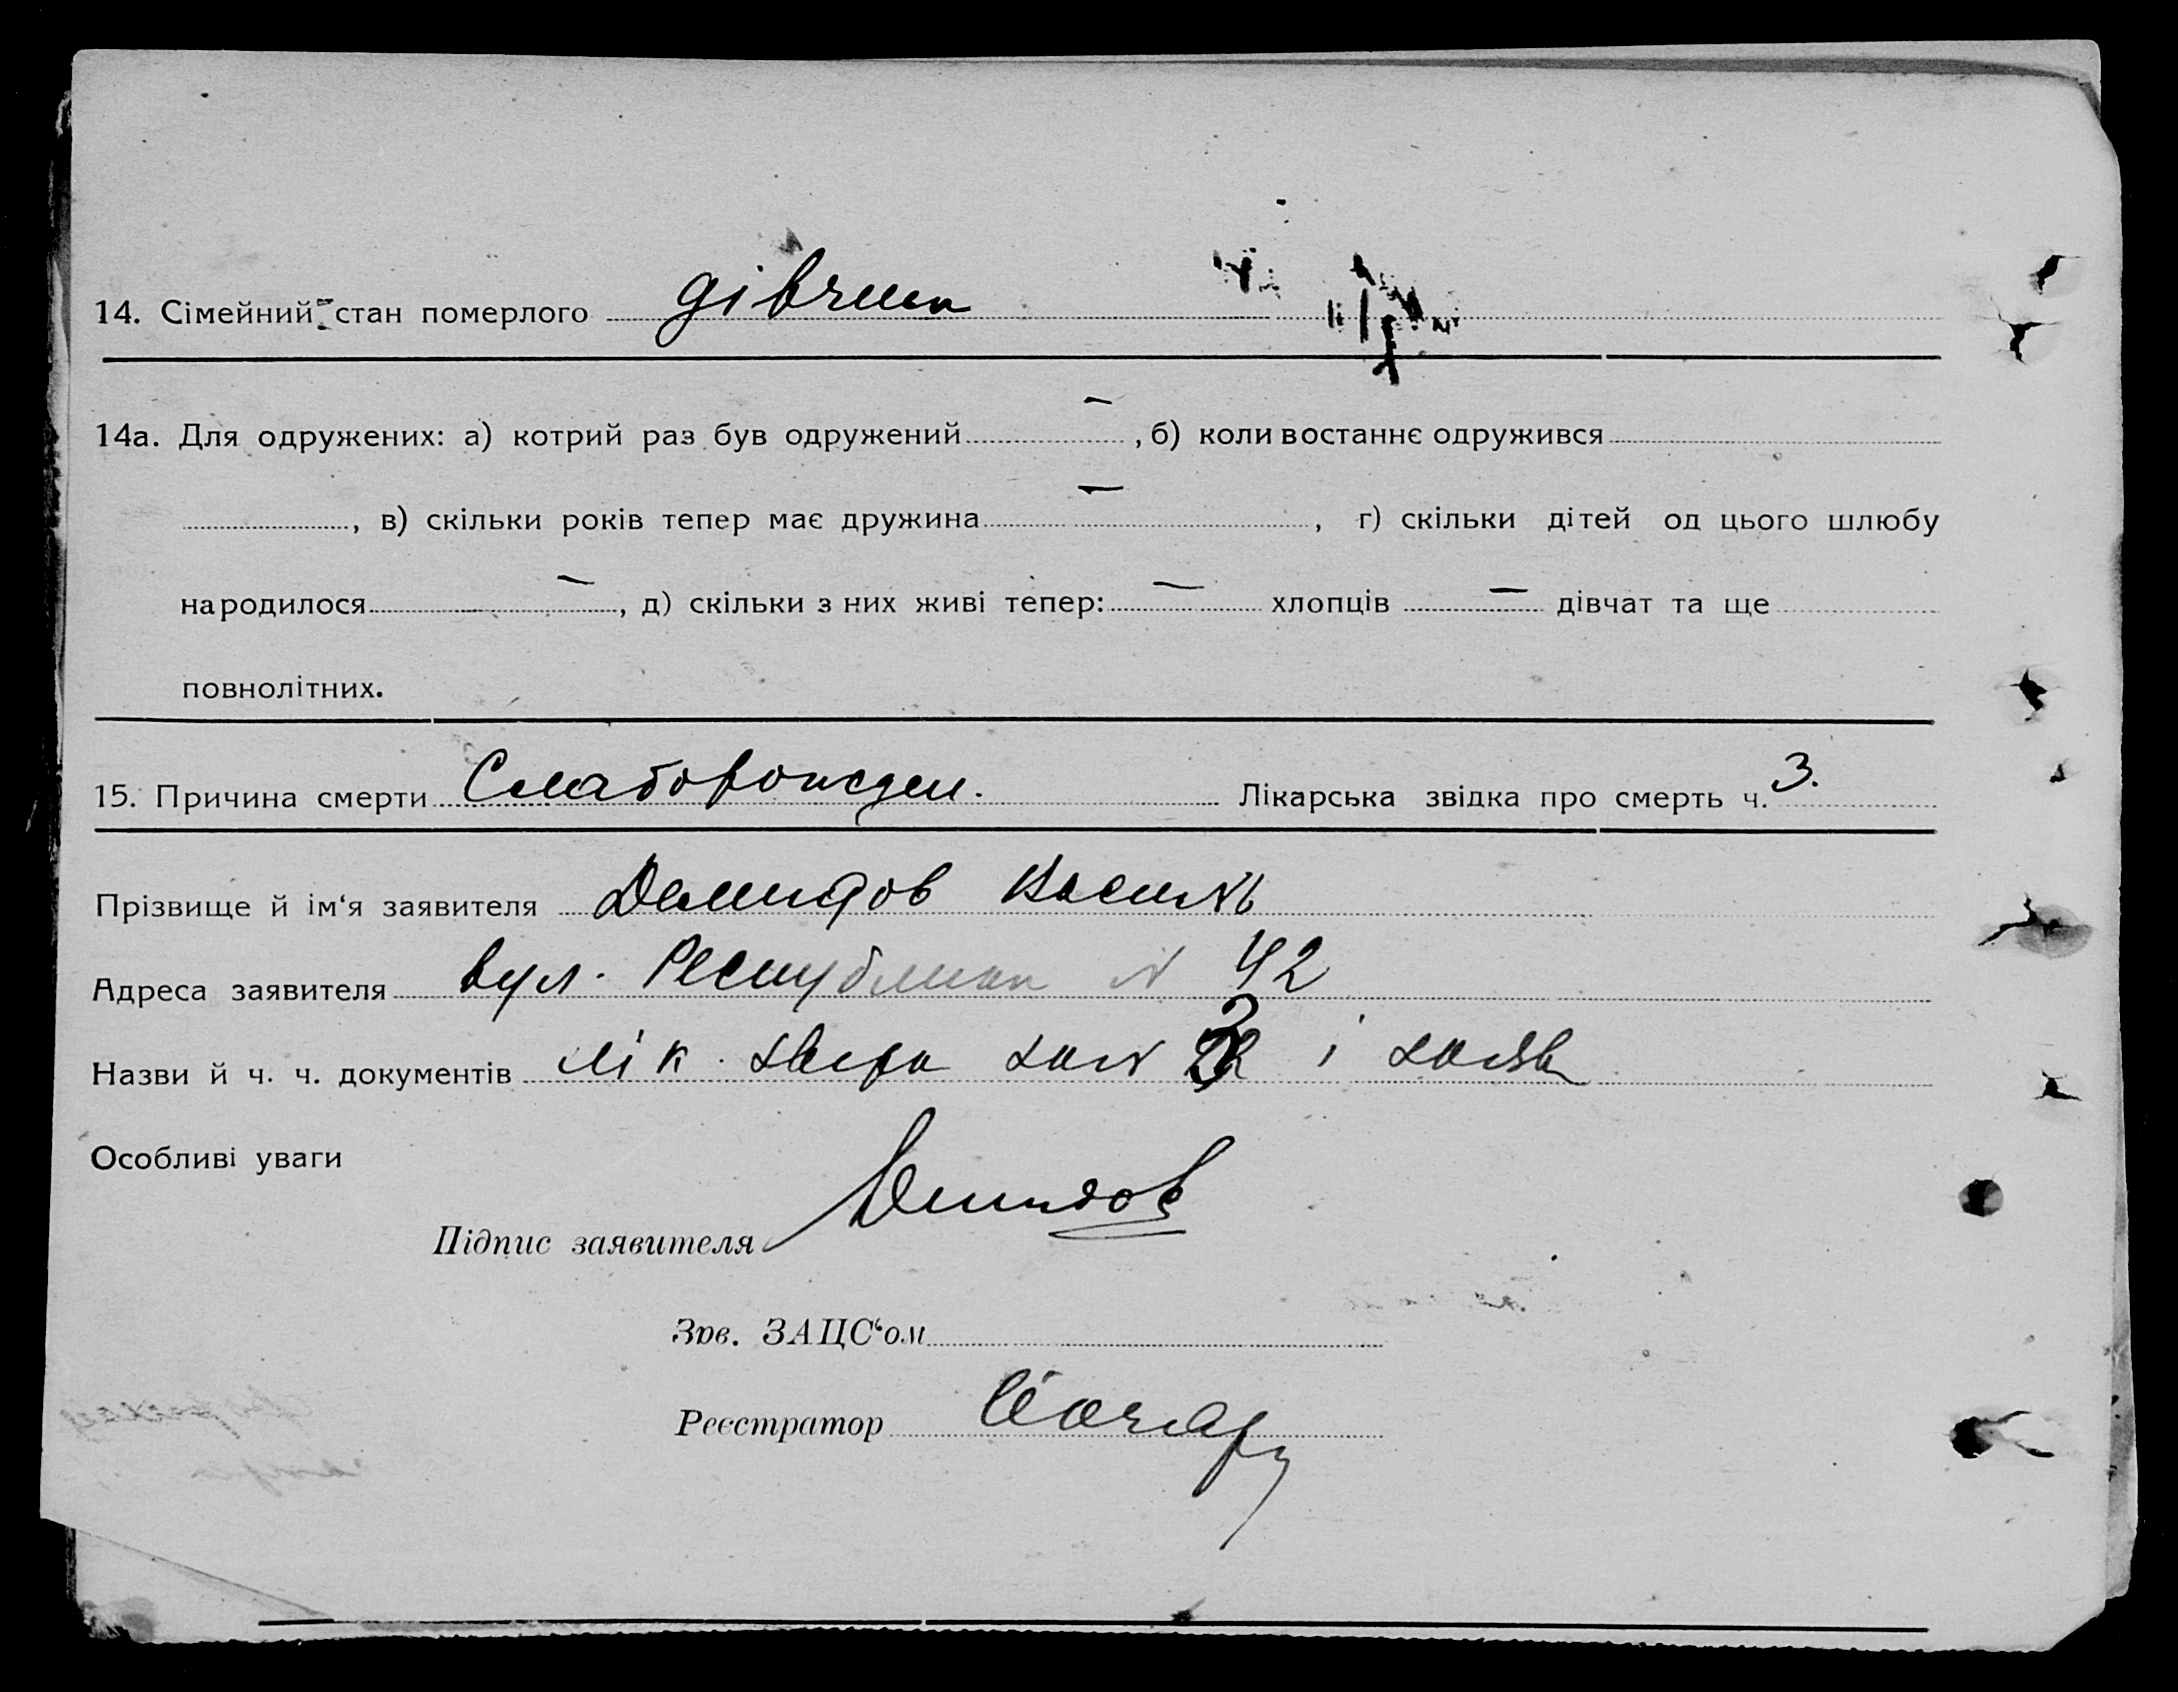 14. Сімейний стан померлого дівчина
14а. Для одружених: а) котрий раз був одружений — , б) коли востаннє одружився
, в) скільки років тепер має дружина — , г) скільки дітей од цього шлюбу
народилося — , д) скільки з них живі тепер: — хлопців — дівчат та ще
повнолітних.
15. Причина смерти Слаборожден. Лікарська звідка про смерть ч. 3.
Прізвище й ім'я заявителя Демидов Василь
Адреса заявителя вул. Республики N 42
Назви й ч. ч. документів лік. 3 і заява
Особливі уваги
Підпис заявителя Демидов
Зав. ЗАЦС'ом
Реєстратор